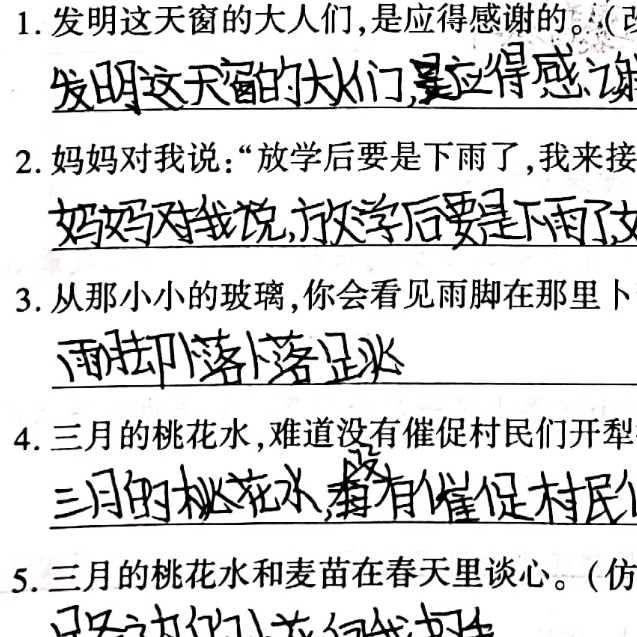 1. 发明这天窗的大人们,是应得感谢的。(改
发明这天窗的大人们,是应得感谢
2. 妈妈对我说:“放学后要是下雨了,我来接
妈妈对我说,放学后要是下雨了,
3. 从那小小的玻璃,你会看见雨脚在那里卜
雨脚卜落卜落跳
4. 三月的桃花水,难道没有催促村民们开犁
三月的桃花水,没有催促村民们
5. 三月的桃花水和麦苗在春天里谈心。(仿